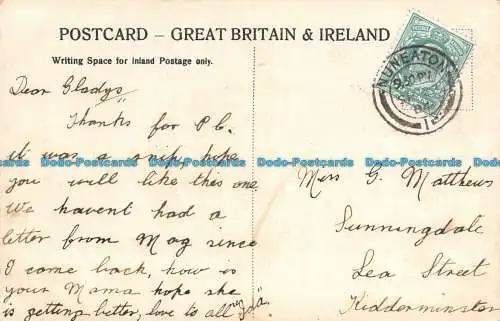 POSTCARD – GREAT BRITAIN & IRELAND
Writing Space for Inland Postage only.
NUNEATON
Dear Gladys
Thanks for P.C.
it was a, hope
you will like this one
We havent had a
letter from Mag since
I come back, how is
your Mama hope she
is getting better, love to all
Miss G. Matthews
Sunningdale
Lea Street
Kidderminster
Dodo-Postcards Dodo-Postcards Dodo-Postcards Dodo-Postcards